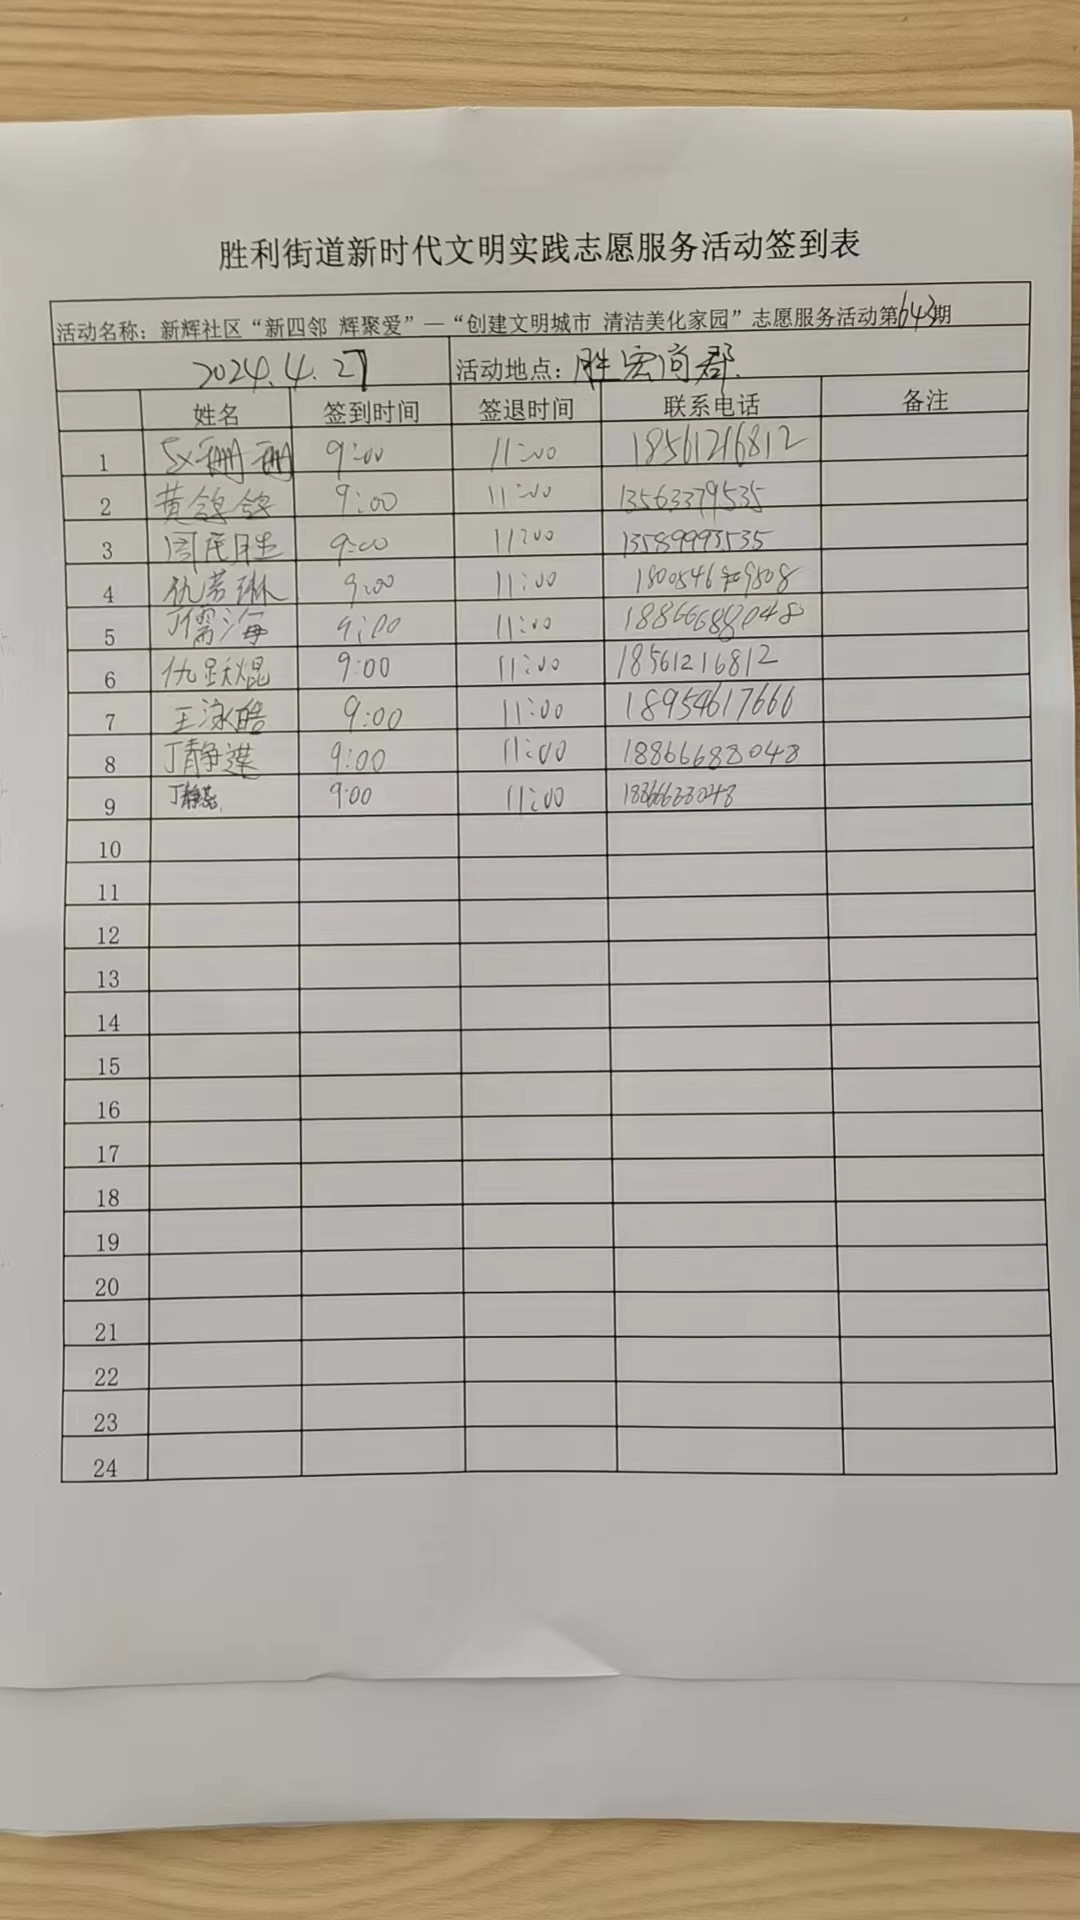 胜利街道新时代文明实践志愿服务活动签到表
活动名称：新辉社区“新四邻 辉聚爱”—“创建文明城市 清洁美化家园”志愿服务活动第643期
2024.4.27 活动地点：胜宏尚郡
姓名 签到时间 签退时间 联系电话 备注
1 珊珊 9:00 11:00 18561216812
2 黄鸽鸽 9:00 11:00 13563379535
3 周民胜 9:00 11:00 13589993535
4 仇芳琳 9:00 11:00 18005469508
5 丁儒海 9:00 11:00 18866688048
6 仇跃焜 9:00 11:00 18561216812
7 王泳皓 9:00 11:00 18954617666
8 丁静莲 9:00 11:00 18866688048
9 丁静 9:00 11:00 18866688048
10
11
12
13
14
15
16
17
18
19
20
21
22
23
24